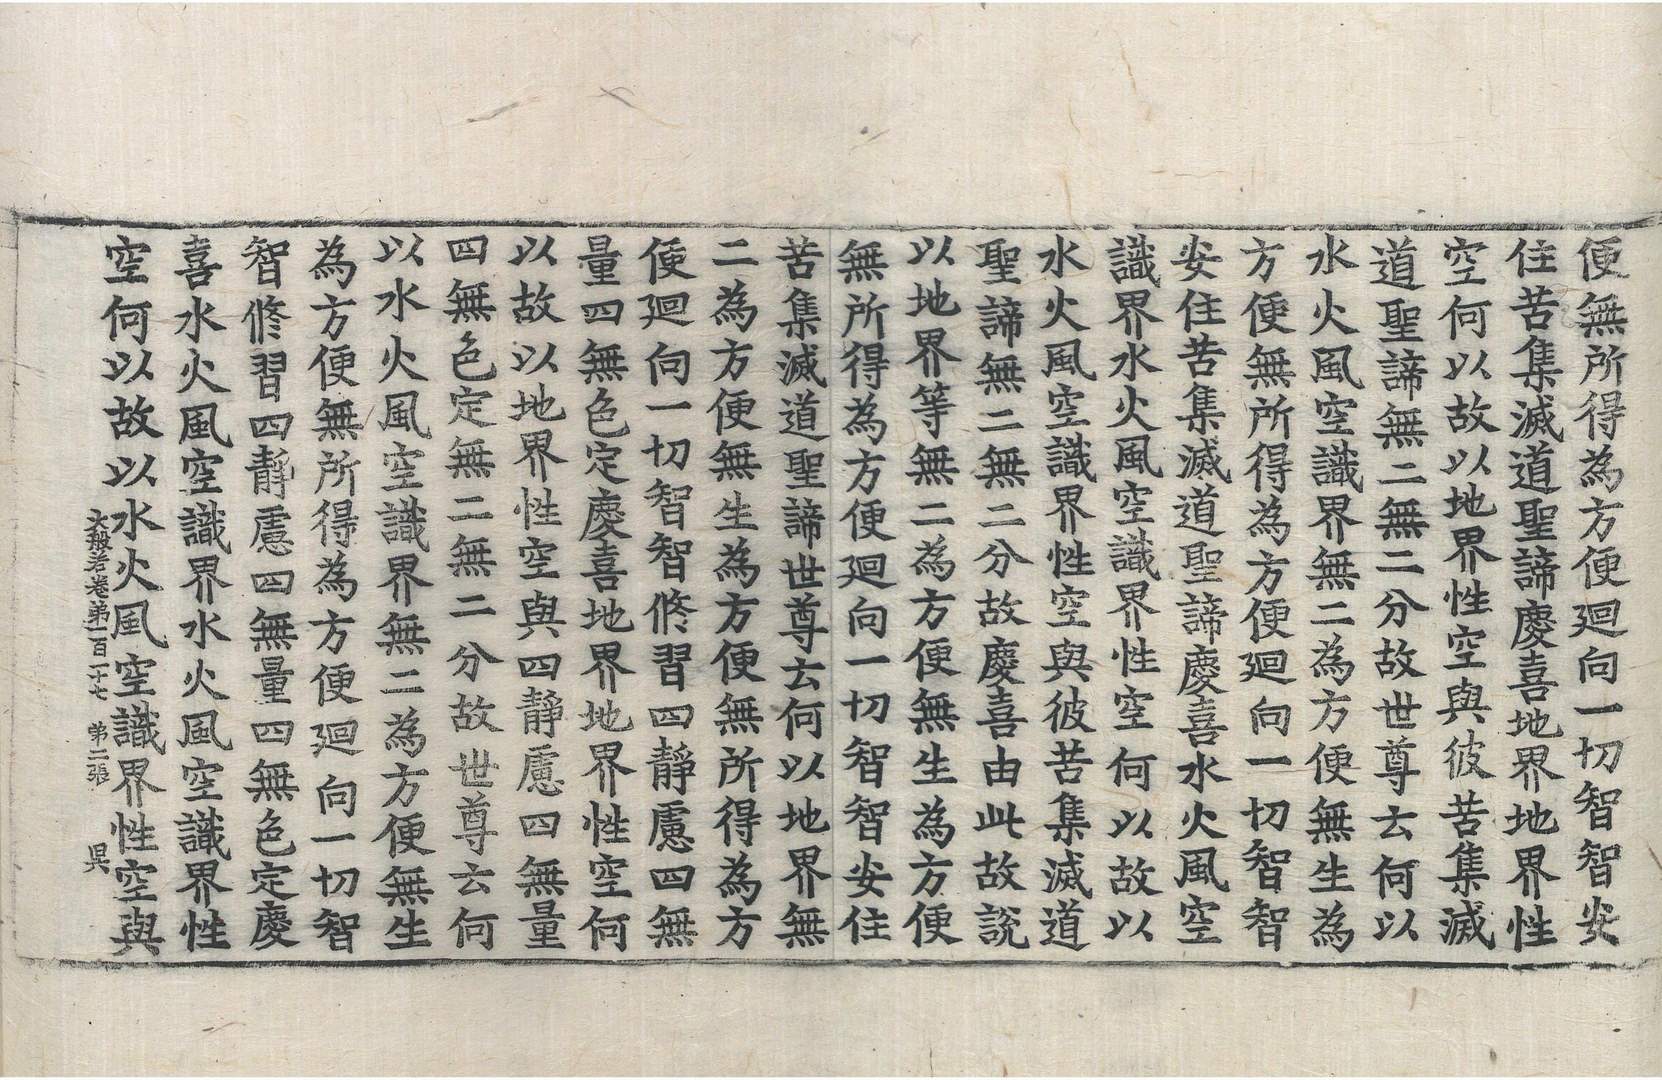 便無所得為方便廻向一切智智安
住苦集滅道聖諦慶喜地界地界性
空何以故以地界性空與彼苦集滅
道聖諦無二無二分故世尊云何以
水火風空識界無二為方便無生為
方便無所得為方便廻向一切智智
安住苦集滅道聖諦慶喜水火風空
識界水火風空識界性空何以故以
水火風空識界性空與彼苦集滅道
聖諦無二無二分故慶喜由此故說
以地界等無二為方便無生為方便
無所得為方便廻向一切智智安住
苦集滅道聖諦世尊云何以地界無
二為方便無生為方便無所得為方
便廻向一切智智修習四靜慮四無
量四無色定慶喜地界地界性空何
以故以地界性空與四靜慮四無量
四無色定無二無二分故世尊云何
以水火風空識界無二為方便無生
為方便無所得為方便廻向一切智
智修習四靜慮四無量四無色定慶
喜水火風空識界水火風空識界性
空何以故以水火風空識界性空與
大般若卷第一百二十七 第二張 具